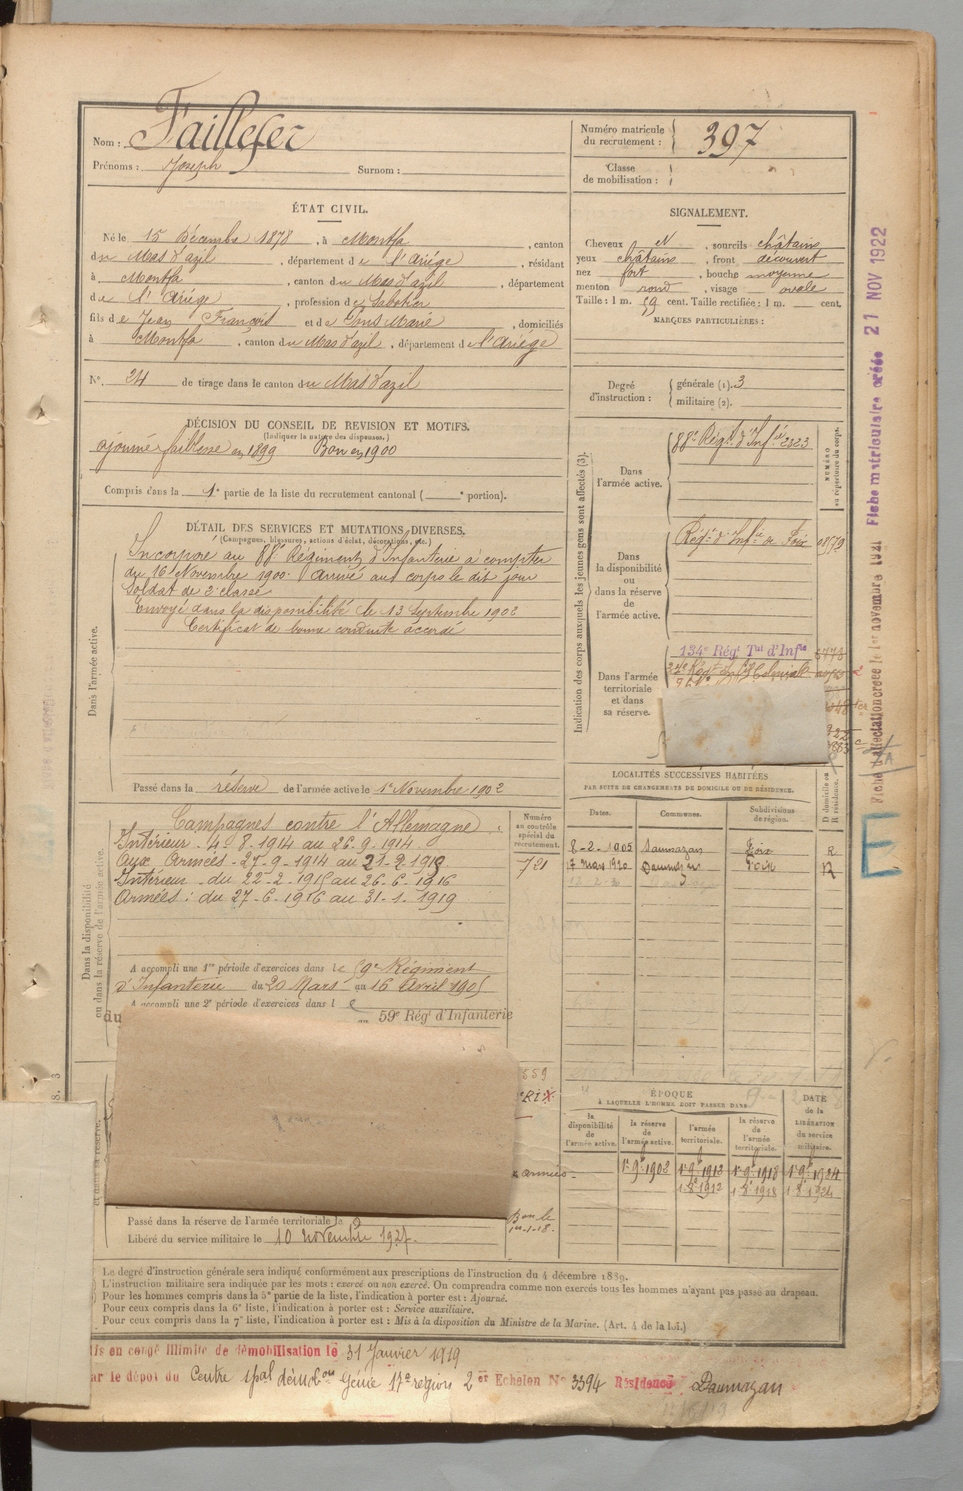 Nom : Taillefer
Prénoms : Joseph Surnom :
Numéro matricule du recrutement : 397
Classe de mobilisation :
ÉTAT CIVIL.
Né le 15 Décembre 1878, à Montfa, canton
du Mas d'azil, département de l'Ariége, résidant
à Montfa, canton du Mas d'azil, département
de l'Ariége, profession de Sabotier
fils de Jean François et de Pons Marie, domiciliés
à Montfa, canton du Mas d'azil, département de l'Ariége
N° 24 de tirage dans le canton du Mas d'azil
SIGNALEMENT.
Cheveux N, sourcils châtains
yeux châtains, front découvert
nez fort, bouche moyenne
menton rond, visage ovale
Taille : 1 m. 59 cent. Taille rectifiée : 1 m. cent.
MARQUES PARTICULIÈRES :
Degré d'instruction : générale (1). 3
militaire (2).
DÉCISION DU CONSEIL DE REVISION ET MOTIFS.
(Indiquer la nature des dispenses.)
ajourné faiblesse en 1899 Bon en 1900
Compris dans la 1e partie de la liste du recrutement cantonal ( e portion).
DÉTAIL DES SERVICES ET MUTATIONS DIVERSES.
(Campagnes, blessures, actions d'éclat, décorations, etc.)
Dans l'armée active.
Incorporé au 88e Régiment d'Infanterie à compter
du 16 Novembre 1900. Arrivé au corps le dit jour
Soldat de 2e classe
Envoyé dans la disponibilité le 13 Septembre 1902
Certificat de bonne conduite accordé
Passé dans la réserve de l'armée active le 1er Novembre 1902
Indication des corps auxquels les jeunes gens sont affectés (3).
NUMÉRO au répertoire du corps.
Dans l'armée active.
88e Régt. d'Infie 2323
Dans la disponibilité ou dans la réserve de l'armée active.
Régt d'Infie de Foix
Dans l'armée territoriale et dans sa réserve.
134e Régt Tal d'Infie
Fiche matriculaire créée 21 NOV 1922
E
Dans la disponibilité ou dans la réserve de l'armée active.
Campagnes contre l'Allemagne.
Intérieur - 4-8-1914 au 26-9-1914
Aux Armées - 27-9-1914 au 21-2-1915
Intérieur - du 22-2-1915 au 26-6-1916
Armées : du 27-6-1916 au 31-1-1919
Numéro au contrôle spécial du recrutement.
721
A accompli une 1re période d'exercices dans le 59e Régiment
d'Infanterie du 20 Mars au 16 Avril 1905
A accompli une 2e période d'exercices dans le
du au 59e Régt d'Infanterie
LOCALITÉS SUCCESSIVES HABITÉES
PAR SUITE DE CHANGEMENTS DE DOMICILE OU DE RÉSIDENCE.
Dates. Communes. Subdivisions de région. D domicile ou R résidence.
8-2-1905 Daumazan Foix R
17 mars 1920 Daumazan Foix R
armées
ÉPOQUE
À LAQUELLE L'HOMME DOIT PASSER DANS
la disponibilité de l'armée active. la réserve de l'armée active. l'armée territoriale. la réserve de l'armée territoriale. DATE de la LIBÉRATION du service militaire.
1er 9bre 1902 1er 9bre 1912 1er 9bre 1918 1er 9bre 1924
Passé dans la réserve de l'armée territoriale le
Libéré du service militaire le 10 novembre 1927.
Le degré d'instruction générale sera indiqué conformément aux prescriptions de l'instruction du 4 décembre 1889.
L'instruction militaire sera indiquée par les mots : exercé ou non exercé. On comprendra comme non exercés tous les hommes n'ayant pas passé au drapeau.
Pour les hommes compris dans la 5e partie de la liste, l'indication à porter est : Ajourné.
Pour ceux compris dans la 6e liste, l'indication à porter est : Service auxiliaire.
Pour ceux compris dans la 7e liste, l'indication à porter est : Mis à la disposition du Ministre de la Marine. (Art. 4 de la loi.)
is en congé illimité de démobilisation le 31 Janvier 1919
ar le dépôt du Centre spal démobon Génie 17e région 2er Echelon N° 3394 Résidence Daumazan